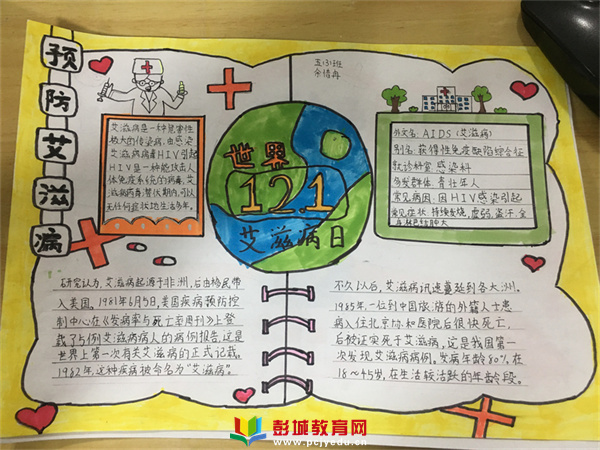 预
防
艾
滋
病
五(3)班
世界
121
艾滋病日
艾滋病是一种危害性
极大的传染病，由感染
艾滋病病毒HIV引起
HIV是一种能攻击人
体免疫系统的病毒，艾
滋病病毒潜伏期内，可以
无任何症状地生活多年。
外文名：AIDS（艾滋病）
别名：获得性免疫缺陷综合征
就诊科室：感染科
多发群体：青壮年人
常见病因：因HIV感染引起
常见症状：持续发烧，虚弱，盗汗，全
身淋巴结肿大
研究认为，艾滋病起源于非洲，后由移民带
入美国。1981年6月5日，美国疾病预防控
制中心在《发病率与死亡率周刊》上登
载了5例艾滋病病人的病例报告，这是
世界上第一次有关艾滋病的正式记载。
1982年，这种疾病被命名为“艾滋病”。
不久以后，艾滋病迅速蔓延到各大洲。
1985年，一位到中国旅游的外籍人士患
病入住北京协和医院后很快死亡，
后被证实死于艾滋病，这是我国第一
次发现艾滋病病例，发病年龄80%在
18～45岁，在生活较活跃的年龄段。
彭城教育网
www.pcjyedu.cn